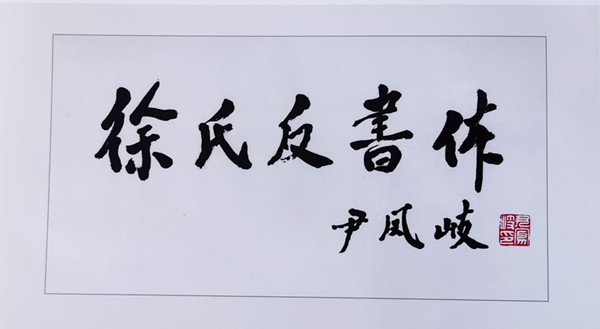 徐氏反書体
尹凤岐